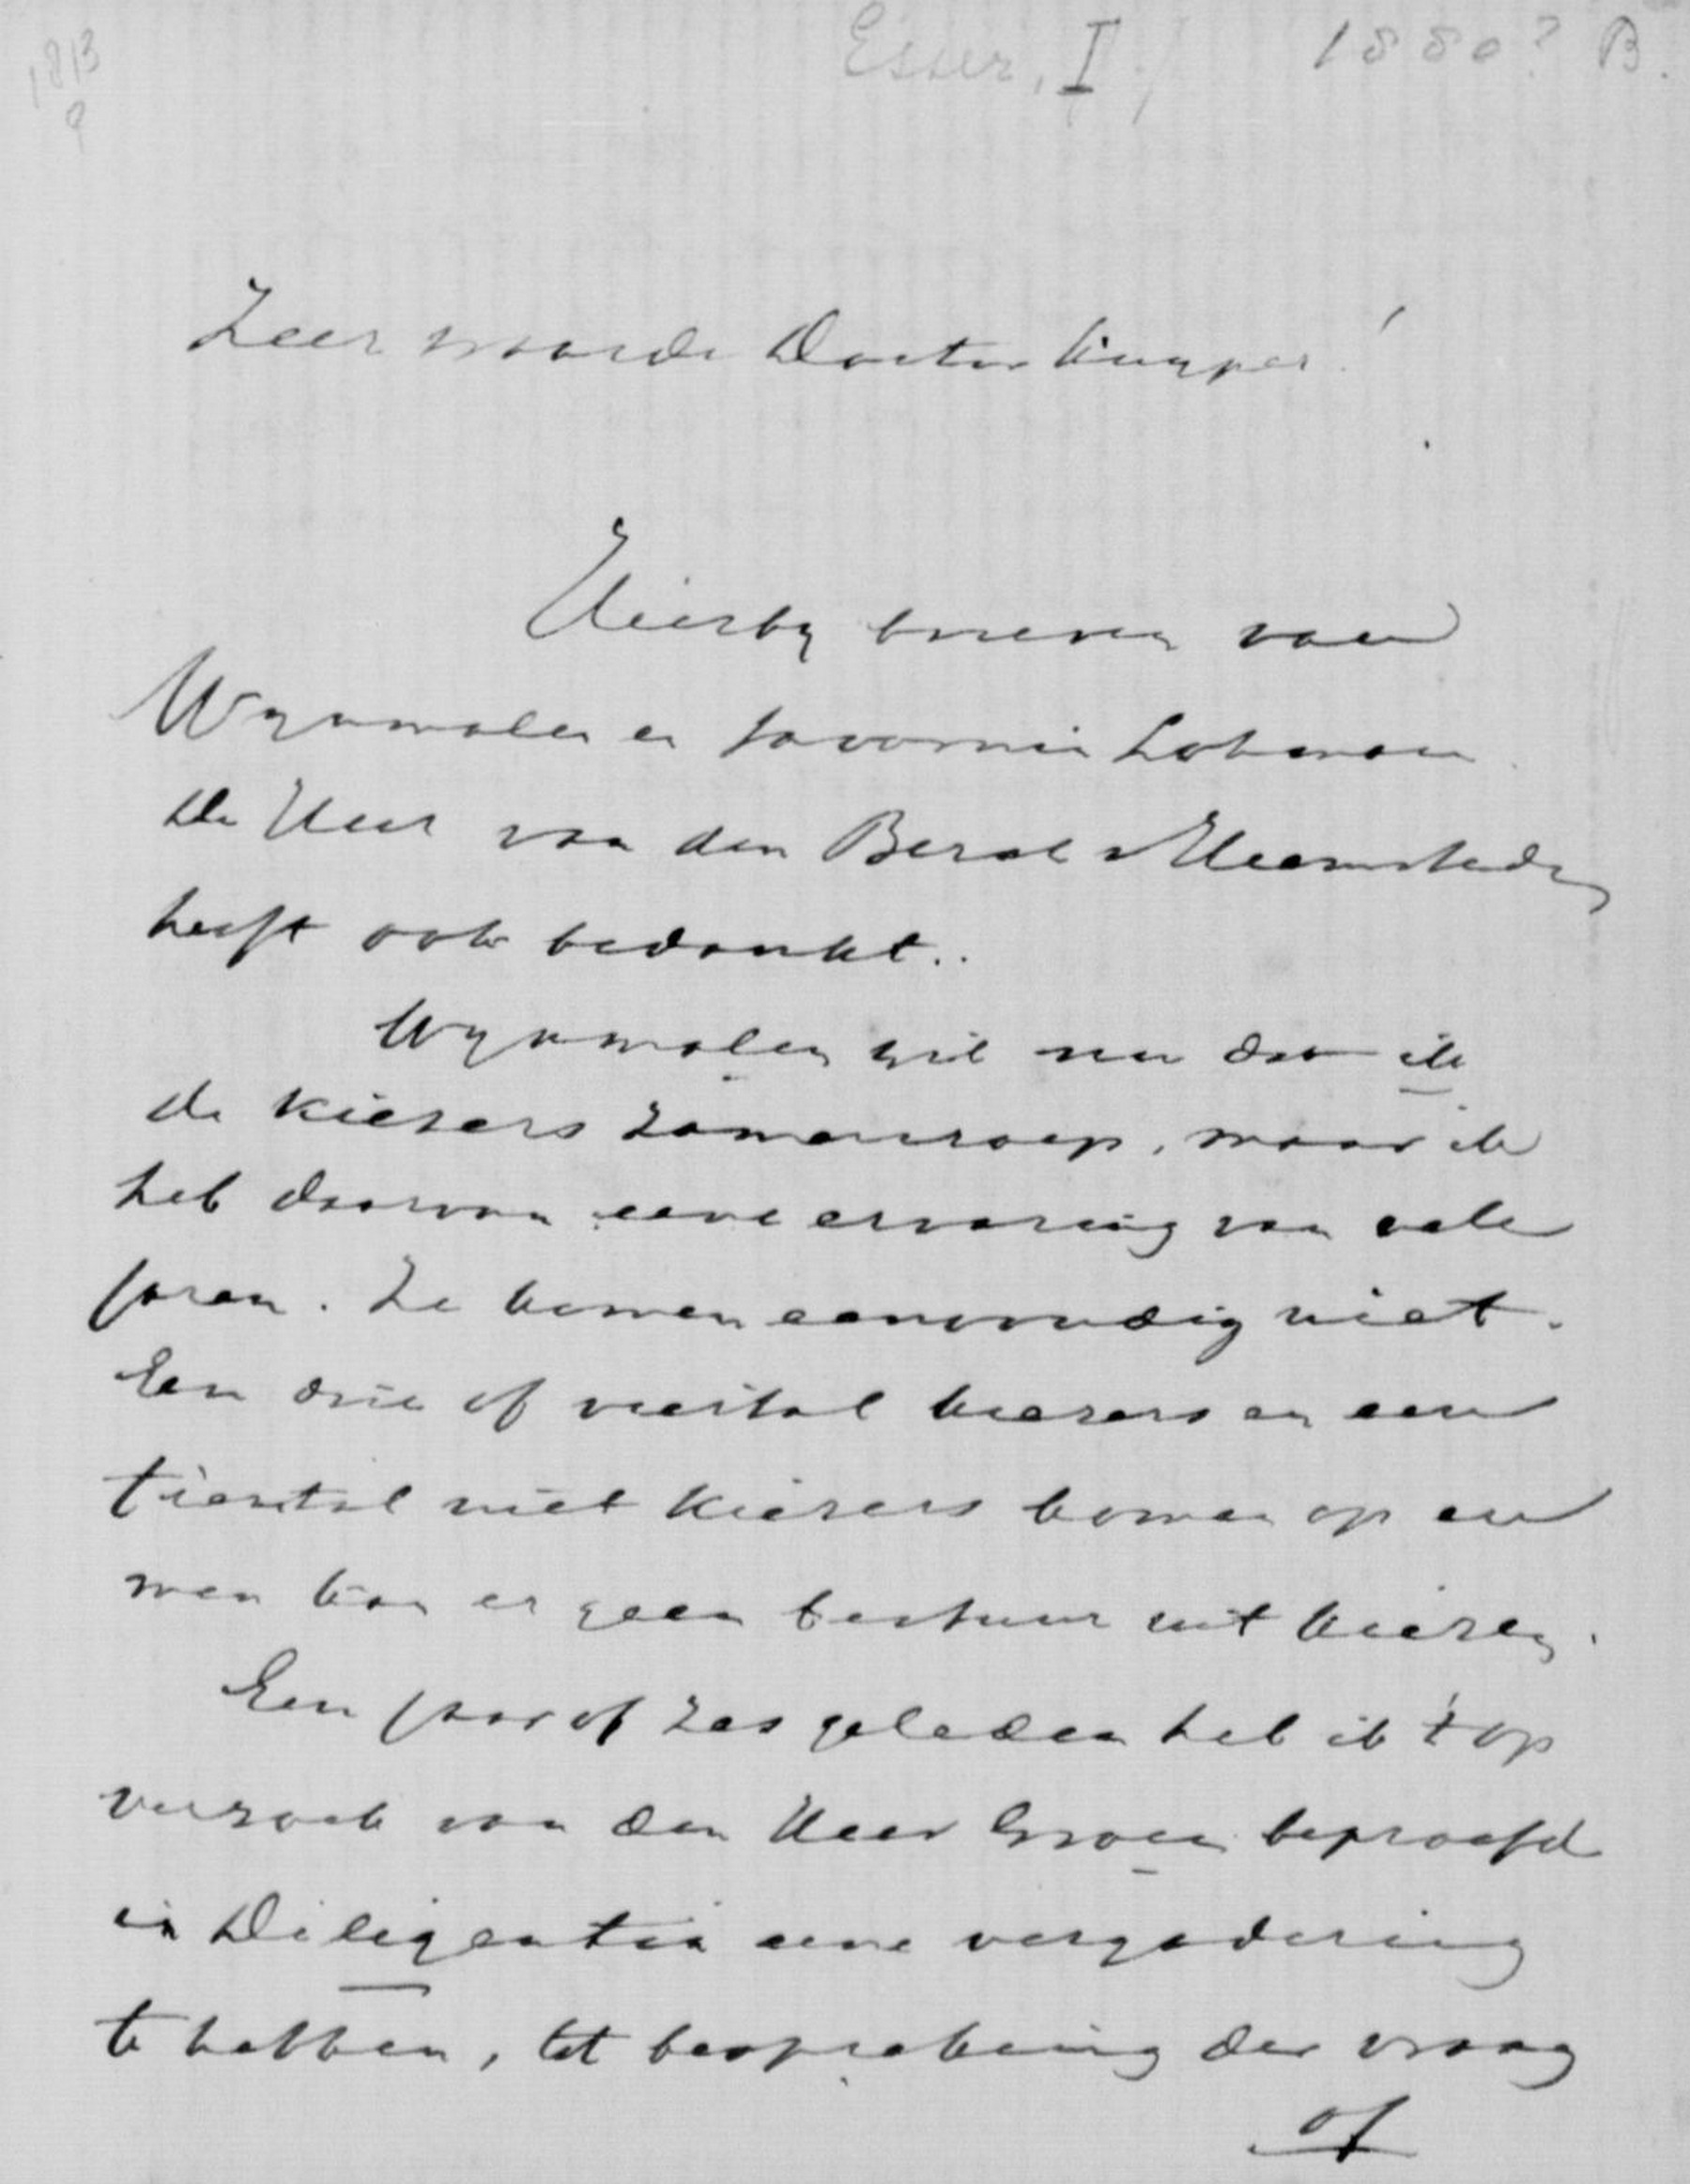 Esser, I, 1880? B.
1813
9
Zeer waarde Doctor Kuyper!
Hierby brieven van
Wynmalen en Savornin Lohman.
De Heer van den Berch v Heemstede
heeft ook bedankt..
Wynmalen wil nu dat ik
de kiezers zamenroep, maar ik
heb daarvan eene ervaring van vele
jaren. Ze komen eenvoudig niet.
Een drie of viertal kiezers en een
tiental niet kiezers komen op en
men kan er geen bestuur uit kiezen.
Een jaar of zes geleden heb ik 't op
verzoek van den Heer Groen beproefd
in Diligentia eene vergadering
te hebben, tot bespreking der vraag
of